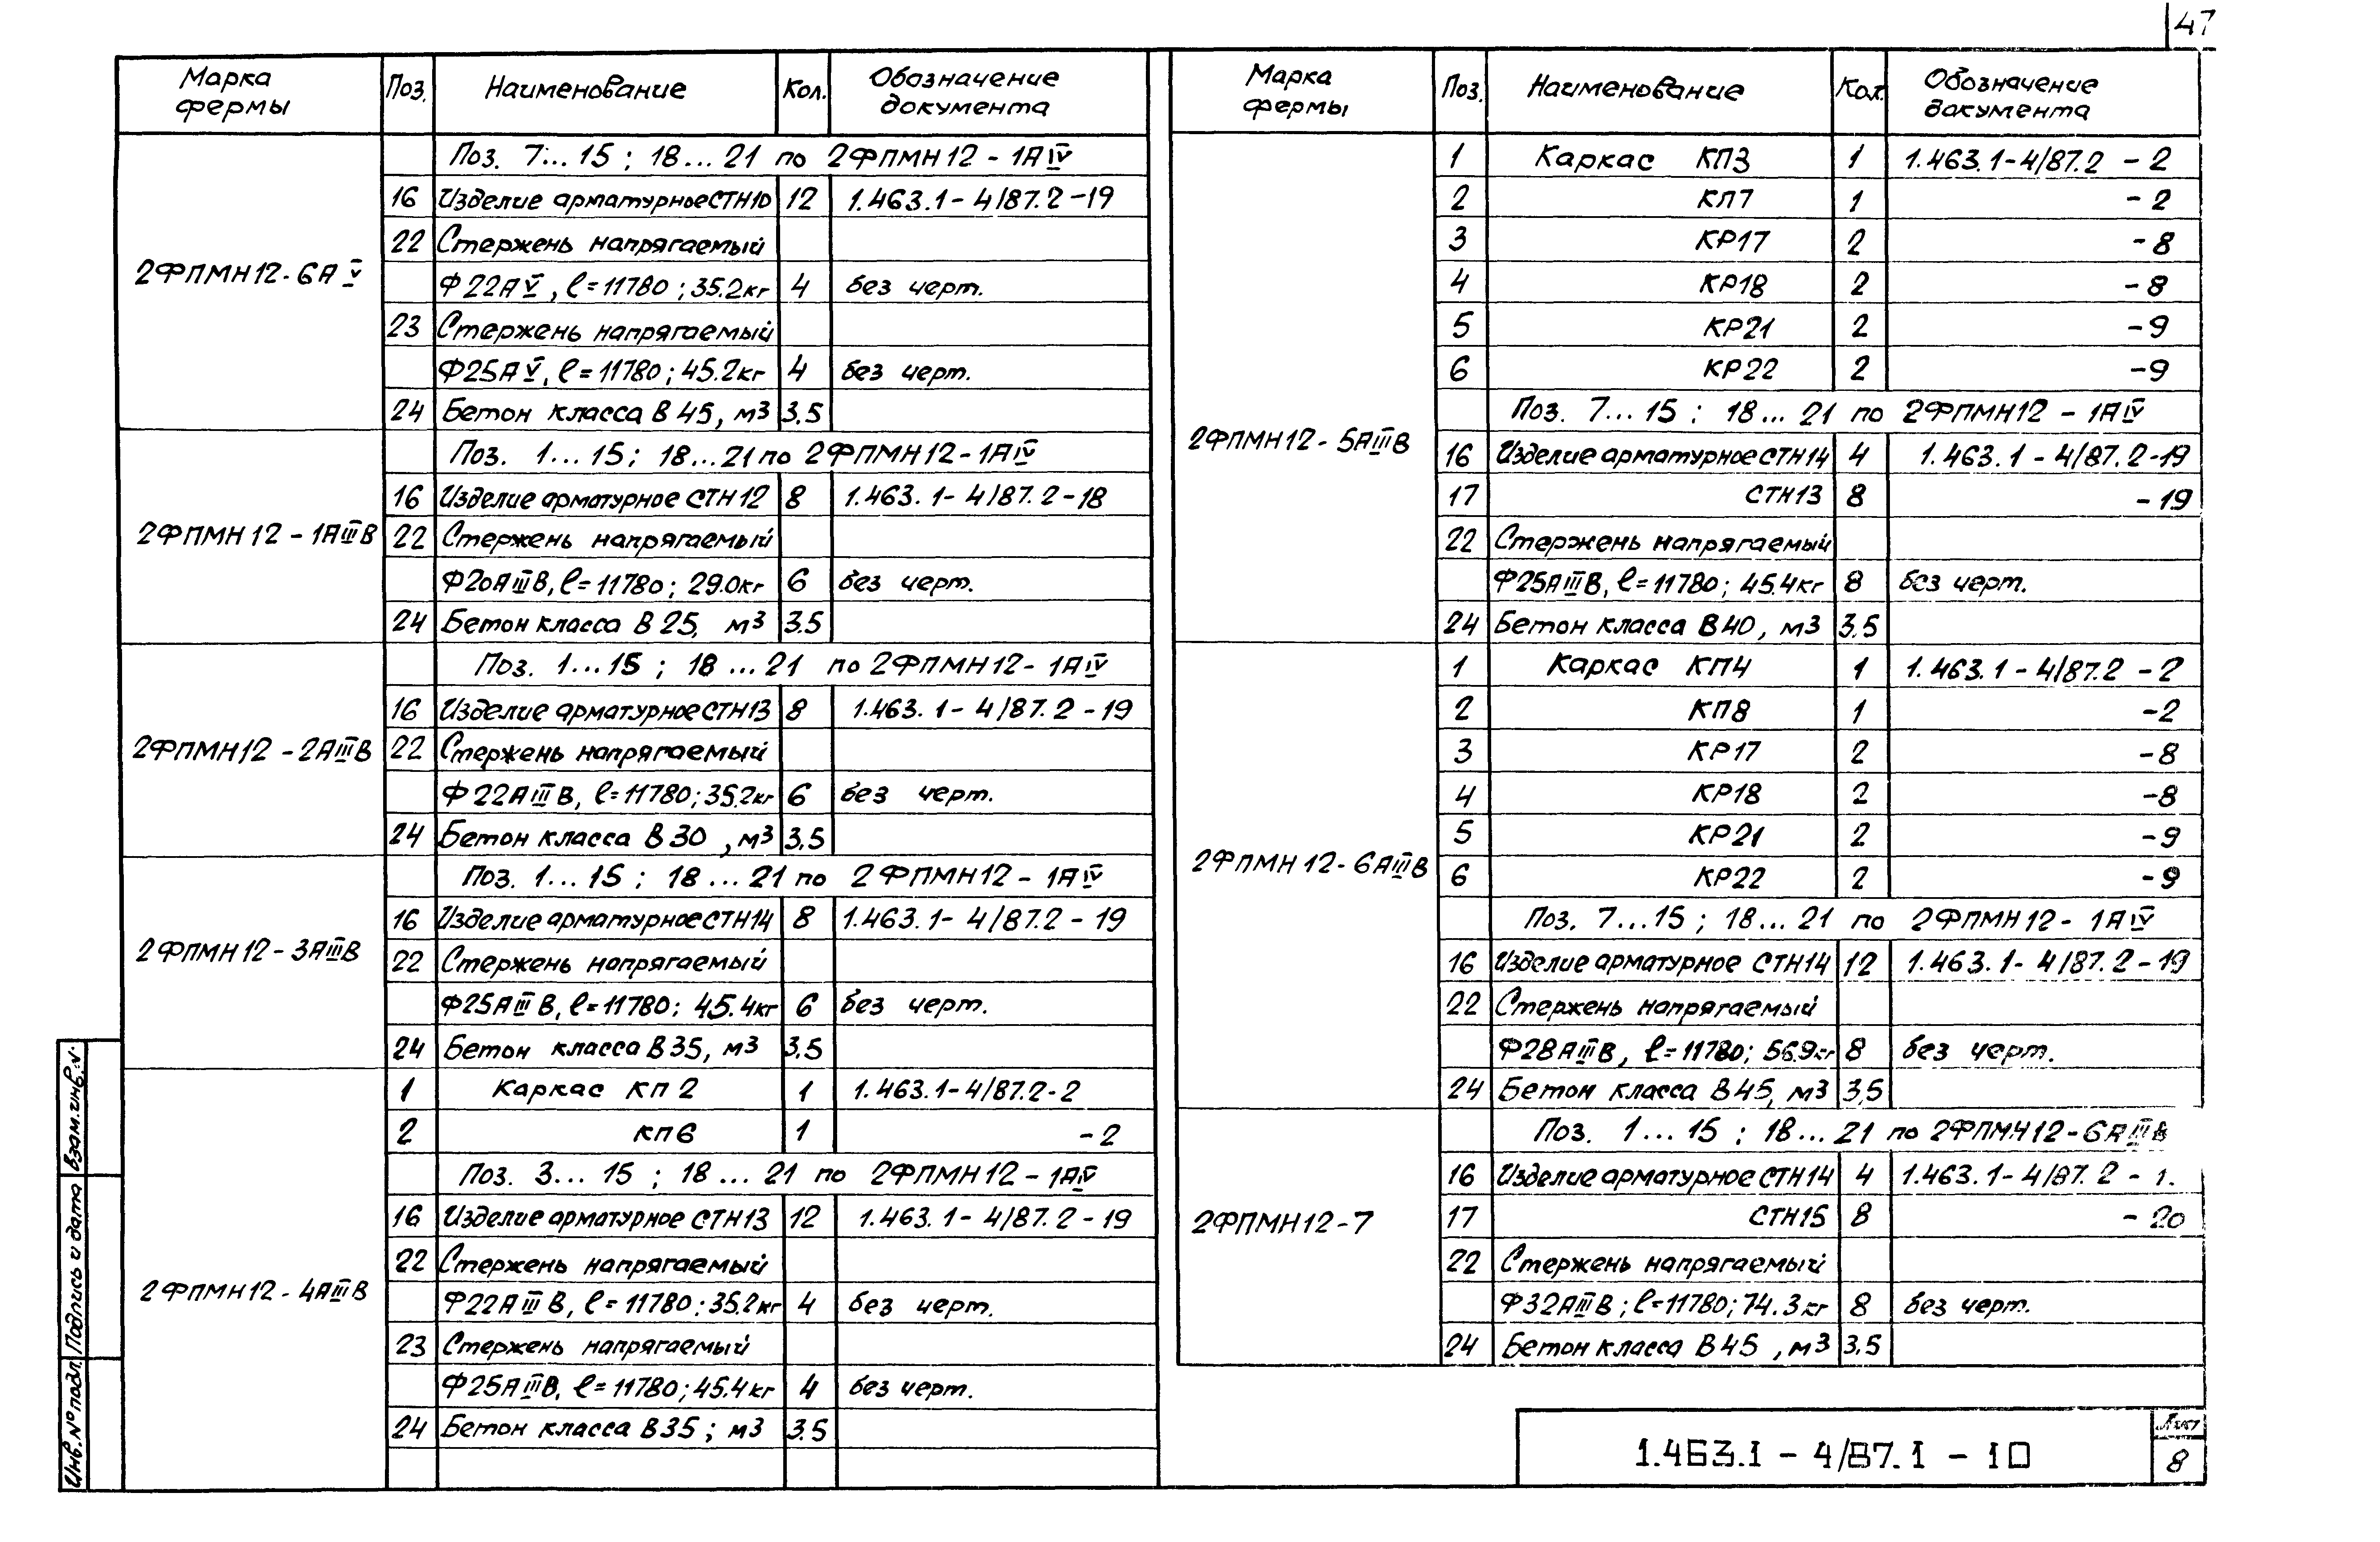 47
Марка фермы Поз. Наименование Кол. Обозначение документа
2ФПМН12-6АⅤ
Поз. 7...15 ; 18...21 по 2ФПМН12-1АⅣ
16 Изделие арматурное СТН10 12 1.463.1-4/87.2-19
22 Стержень напрягаемый
Ф22АⅤ, ℓ=11780; 35.2кг 4 без черт.
23 Стержень напрягаемый
Ф25АⅤ, ℓ=11780; 45.2кг 4 без черт.
24 Бетон класса В45, м3 3.5
2ФПМН12-1АⅢВ
Поз. 1...15; 18...21 по 2ФПМН12-1АⅣ
16 Изделие арматурное СТН12 8 1.463.1-4/87.2-18
22 Стержень напрягаемый
Ф20АⅢВ, ℓ=11780; 29.0кг 6 без черт.
24 Бетон класса В25, м3 3.5
2ФПМН12-2АⅢВ
Поз. 1...15 ; 18...21 по 2ФПМН12-1АⅣ
16 Изделие арматурное СТН13 8 1.463.1-4/87.2-19
22 Стержень напрягаемый
Ф22АⅢВ, ℓ=11780; 35.2кг 6 без черт.
24 Бетон класса В30, м3 3.5
2ФПМН12-3АⅢВ
Поз. 1...15 ; 18...21 по 2ФПМН12-1АⅣ
16 Изделие арматурное СТН14 8 1.463.1-4/87.2-19
22 Стержень напрягаемый
Ф25АⅢВ, ℓ=11780; 45.4кг 6 без черт.
24 Бетон класса В35, м3 3.5
2ФПМН12-4АⅢВ
1 Каркас КП2 1 1.463.1-4/87.2-2
2 КП6 1 -2
Поз. 3...15 ; 18...21 по 2ФПМН12-1АⅣ
16 Изделие арматурное СТН13 12 1.463.1-4/87.2-19
22 Стержень напрягаемый
Ф22АⅢВ, ℓ=11780; 35.2кг 4 без черт.
23 Стержень напрягаемый
Ф25АⅢВ, ℓ=11780; 45.4кг 4 без черт.
24 Бетон класса В35; м3 3.5
Марка фермы Поз. Наименование Кол. Обозначение документа
2ФПМН12-5АⅢВ
1 Каркас КП3 1 1.463.1-4/87.2-2
2 КП7 1 -2
3 КР17 2 -8
4 КР18 2 -8
5 КР21 2 -9
6 КР22 2 -9
Поз. 7...15 ; 18...21 по 2ФПМН12-1АⅣ
16 Изделие арматурное СТН14 4 1.463.1-4/87.2-19
17 СТН13 8 -19
22 Стержень напрягаемый
Ф25АⅢВ, ℓ=11780; 45.4кг 8 без черт.
24 Бетон класса В40, м3 3.5
2ФПМН12-6АⅢВ
1 Каркас КП4 1 1.463.1-4/87.2-2
2 КП8 1 -2
3 КР17 2 -8
4 КР18 2 -8
5 КР21 2 -9
6 КР22 2 -9
Поз. 7...15 ; 18...21 по 2ФПМН12-1АⅣ
16 Изделие арматурное СТН14 12 1.463.1-4/87.2-19
22 Стержень напрягаемый
Ф28АⅢВ, ℓ=11780; 56.9кг 8 без черт.
24 Бетон класса В45, м3 3,5
2ФПМН12-7
Поз. 1...15 ; 18...21 по 2ФПМН12-6АⅢВ
16 Изделие арматурное СТН14 4 1.463.1-4/87.2-1.
17 СТН15 8 -20
22 Стержень напрягаемый
Ф32АⅢВ; ℓ=11780; 74.3кг 8 без черт.
24 Бетон класса В45, м3 3.5
Инв.№подл. Подпись и дата Взам.инв.№
1.463.1-4/87.1-10
Лист
8